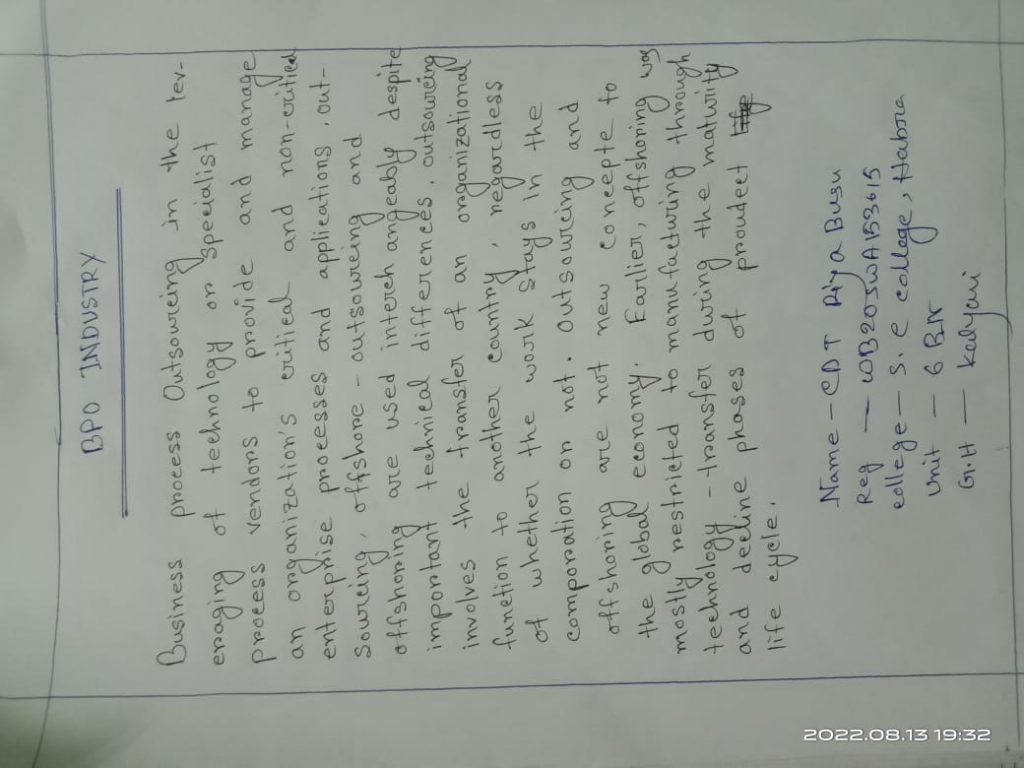 BPO INDUSTRY
Business process Outsourcing in the lev-
eraging of technology or specialist
process vendors to provide and manage
an organization's critical and non-critical
enterprise processes and applications, out-
sourcing, offshore - outsourcing and
offshoring are used interchangeably despite
important technical differences, outsourcing
involves the transfer of an organizational
function to another country, regardless
of whether the work stays in the
corporation or not. Outsourcing and
offshoring are not new concepts to
the global economy. Earlier, offshoring was
mostly restricted to manufacturing through
technology - transfer during the maturity
and decline phases of proudect
life cycle.
Name - CDT Riya Busu
Reg - WB20SWA153615
college - S.C college, Habra
Unit - 6 BN
G.H - Kalyani
2022.08.13 19:32